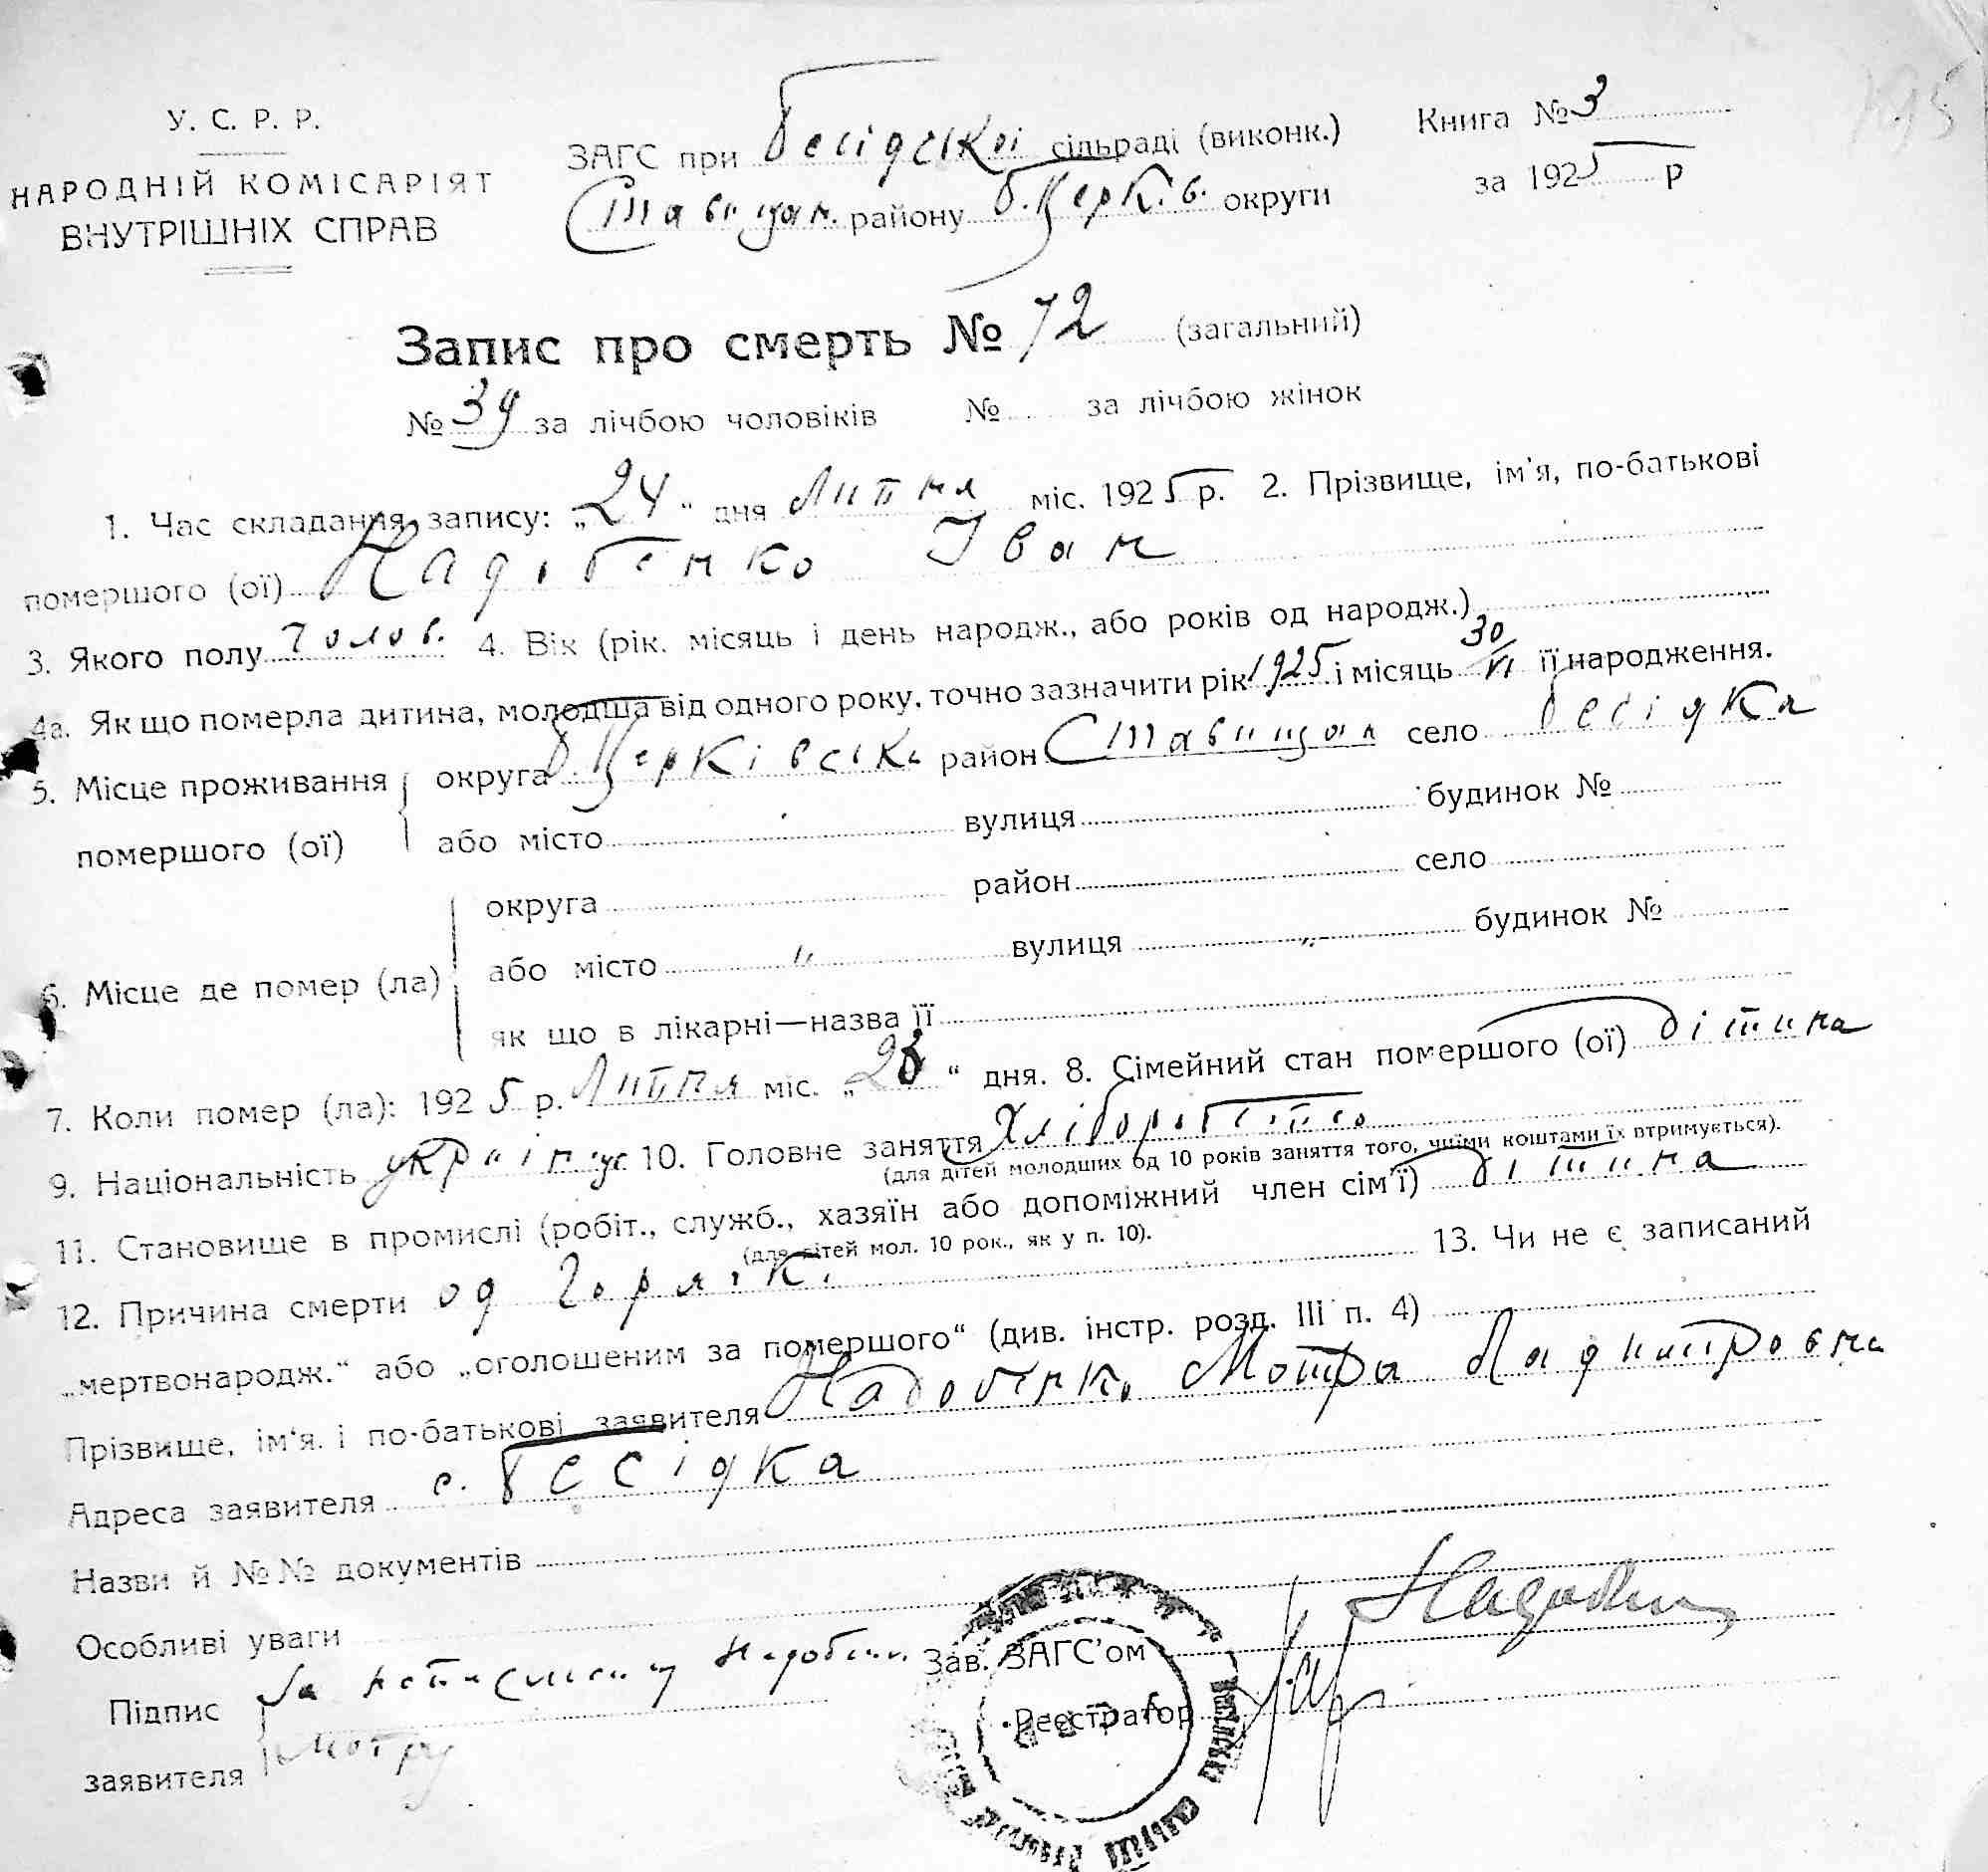 195
У. С. Р. Р.
НАРОДНІЙ КОМІСАРІЯТ
ВНУТРІШНІХ СПРАВ
ЗАГС при Бесідській сільраді (виконк.)
Ставищан. району Б.Церків. округи
Книга № 3
за 1925 р
Запис про смерть № 72 (загальний)
№ 39 за лічбою чоловіків № за лічбою жінок
1. Час складання запису: „24“ дня Липня міс. 1925 р. 2. Прізвище, ім'я, по-батькові
помершого (ої) Надобенко Іван
3. Якого полу Чолов. 4. Вік (рік. місяць і день народж., або років од народж.)
4а. Як що померла дитина, молодша від одного року, точно зазначити рік 1925 і місяць 30/VI її народження.
5. Місце проживання помершого (ої) округа Б Церківська район Ставищан село Бесідка
або місто вулиця будинок №
6. Місце де помер (ла) округа район село
або місто „ вулиця „ будинок №
як що в лікарні—назва її
7. Коли помер (ла): 1925 р. Липня міс. „23“ дня. 8. Сімейний стан помершого (ої) дітина
9. Національність україн. 10. Головне заняття Хліборобство
(для дітей молодших од 10 років заняття того, чиїми коштами їх втримується).
11. Становище в промислі (робіт., служб., хазяїн або допоміжний член сім'ї) дітина
(для дітей мол. 10 рок., як у п. 10).
12. Причина смерти од Горячк. 13. Чи не є записаний
„мертвонародж.“ або „оголошеним за помершого“ (див. інстр. розд. III п. 4)
Прізвище, ім'я. і по-батькові заявителя Надобенко Мотра
Адреса заявителя с. Бесідка
Назви й №№ документів
Особливі уваги
Підпис заявителя За неписьменну Надобен.
Мотру
Зав. ЗАГС'ом
Реєстратор